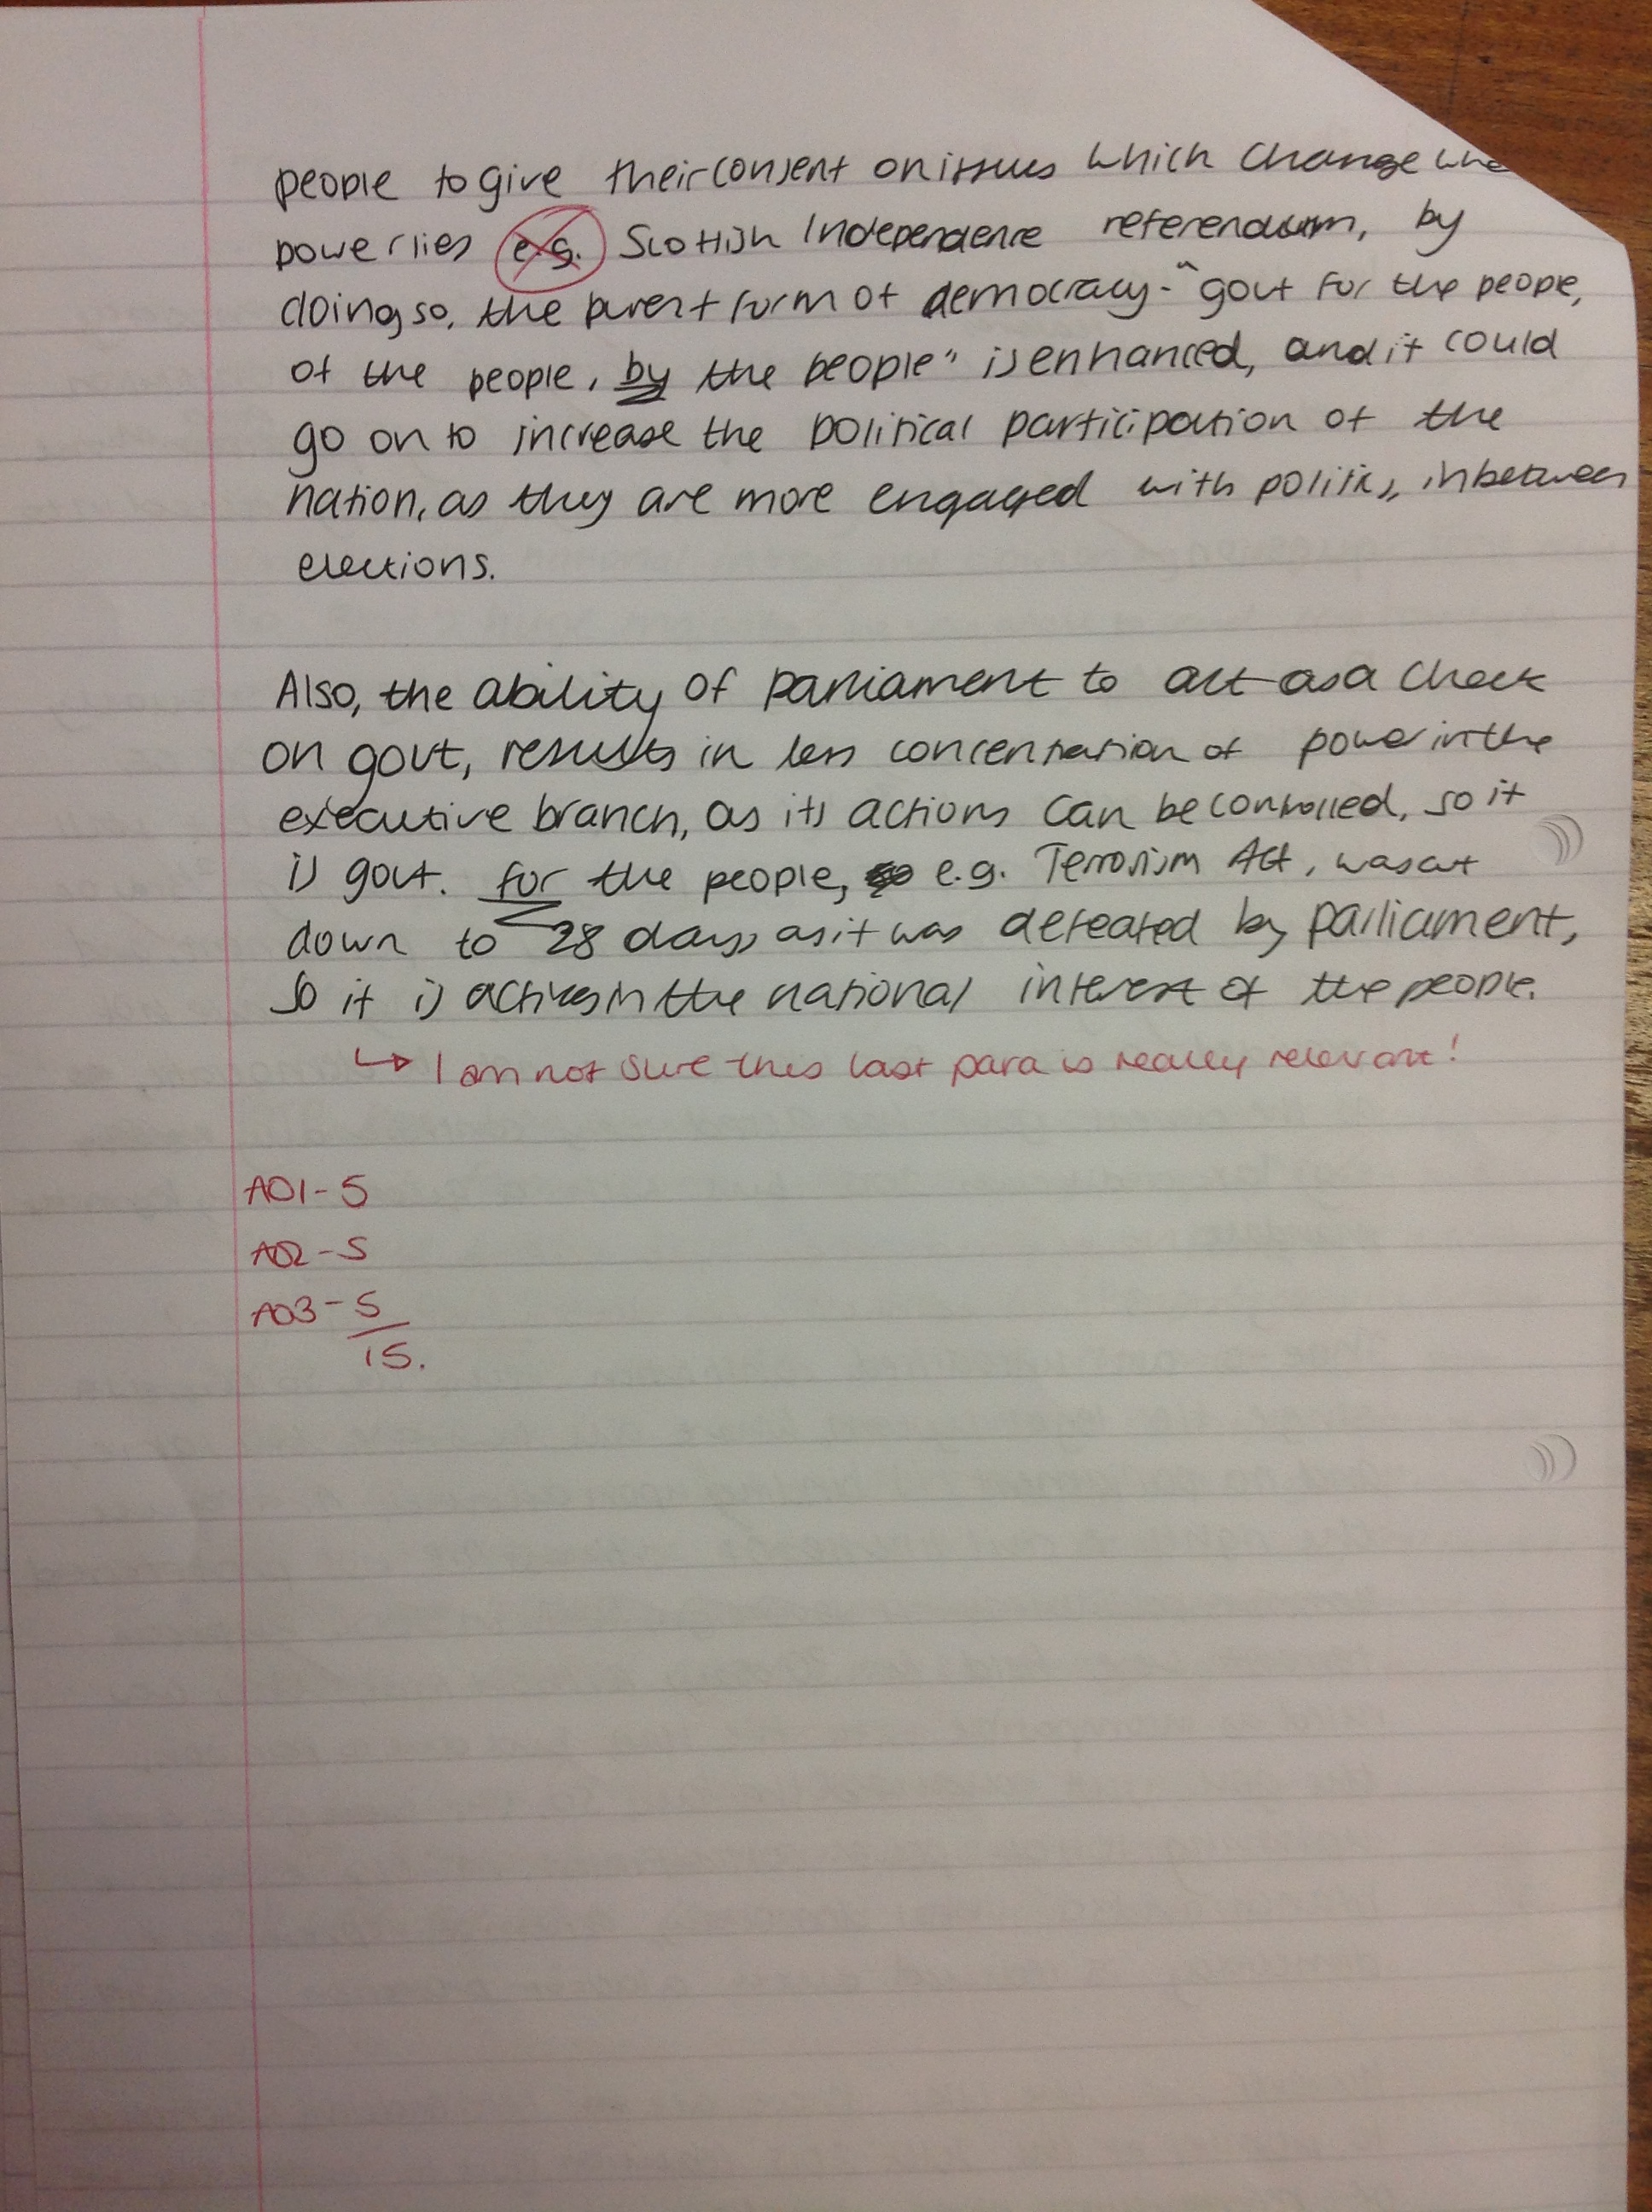 people to give their consent on issues which change
power lies e.g. Scottish Independence referendum, by
doing so, the purest form of democracy - "govt for the people,
of the people, by the people" is enhanced, and it could
go on to increase the political participation of the
nation, as they are more engaged with politics, inbetween
elections.
Also, the ability of parliament to act as a check
on govt, results in less concentration of power in the
executive branch, as its actions can be controlled, so it
is govt. for the people, e.g. Terrorism Act, was cut
down to 28 days, as it was defeated by parliament,
so it is acting in the national interest of the people.
↳ I am not sure this last para is really relevant!
AO1 - 5
AO2 - 5
AO3 - 5
15.